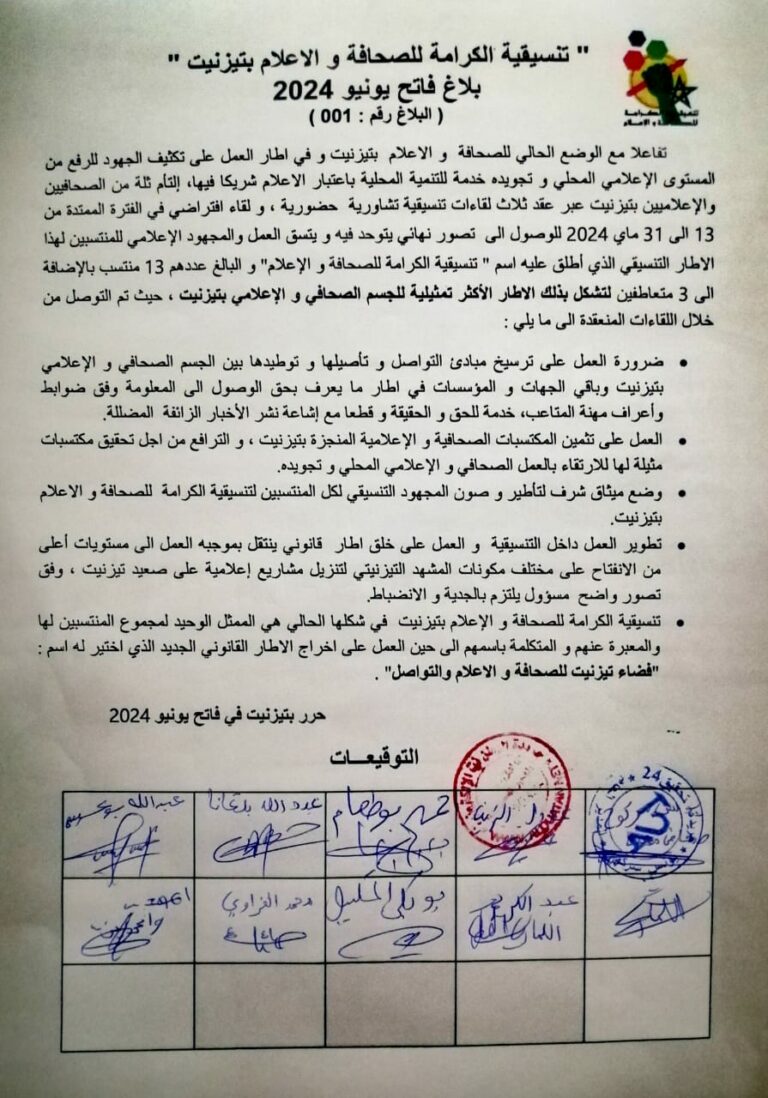 " تنسيقية الكرامة للصحافة و الاعلام بتيزنيت "
بلاغ فاتح يونيو 2024
( البلاغ رقم : 001 )
تنسيقية الكرامة
للصحافة و الإعلام
تفاعلا مع الوضع الحالي للصحافة و الاعلام بتيزنيت و في اطار العمل على تكثيف الجهود للرفع من
المستوى الإعلامي المحلي و تجويده خدمة للتنمية المحلية باعتبار الاعلام شريكا فيها، إلتأم ثلة من الصحافيين
والإعلاميين بتيزنيت عبر عقد ثلاث لقاءات تنسيقية تشاورية حضورية ، و لقاء افتراضي في الفترة الممتدة من
13 الى 31 ماي 2024 للوصول الى تصور نهائي يتوحد فيه و يتسق العمل والمجهود الإعلامي للمنتسبين لهذا
الاطار التنسيقي الذي أطلق عليه اسم " تنسيقية الكرامة للصحافة و الإعلام" و البالغ عددهم 13 منتسب بالإضافة
الى 3 متعاطفين لتشكل بذلك الاطار الأكثر تمثيلية للجسم الصحافي و الإعلامي بتيزنيت ، حيث تم التوصل من
خلال اللقاءات المنعقدة الى ما يلي :
• ضرورة العمل على ترسيخ مبادئ التواصل و تأصيلها و توطيدها بين الجسم الصحافي و الإعلامي
بتيزنيت وباقي الجهات و المؤسسات في اطار ما يعرف بحق الوصول الى المعلومة وفق ضوابط
وأعراف مهنة المتاعب، خدمة للحق و الحقيقة و قطعا مع إشاعة نشر الأخبار الزائفة المضللة.
• العمل على تثمين المكتسبات الصحافية و الإعلامية المنجزة بتيزنيت ، و الترافع من اجل تحقيق مكتسبات
مثيلة لها للارتقاء بالعمل الصحافي و الإعلامي المحلي و تجويده.
• وضع ميثاق شرف لتأطير و صون المجهود التنسيقي لكل المنتسبين لتنسيقية الكرامة للصحافة و الاعلام
بتيزنيت.
• تطوير العمل داخل التنسيقية و العمل على خلق اطار قانوني ينتقل بموجبه العمل الى مستويات أعلى
من الانفتاح على مختلف مكونات المشهد التيزنيتي لتنزيل مشاريع إعلامية على صعيد تيزنيت ، وفق
تصور واضح مسؤول يلتزم بالجدية و الانضباط.
• تنسيقية الكرامة للصحافة و الإعلام بتيزنيت في شكلها الحالي هي الممثل الوحيد لمجموع المنتسبين لها
والمعبرة عنهم و المتكلمة باسمهم الى حين العمل على اخراج الاطار القانوني الجديد الذي اختير له اسم :
"فضاء تيزنيت للصحافة و الاعلام والتواصل" .
حرر بتيزنيت في فاتح يونيو 2024
التوقيعات
24
بوطعام
عبد الله
عبد الله
عبد الكريم
محمد